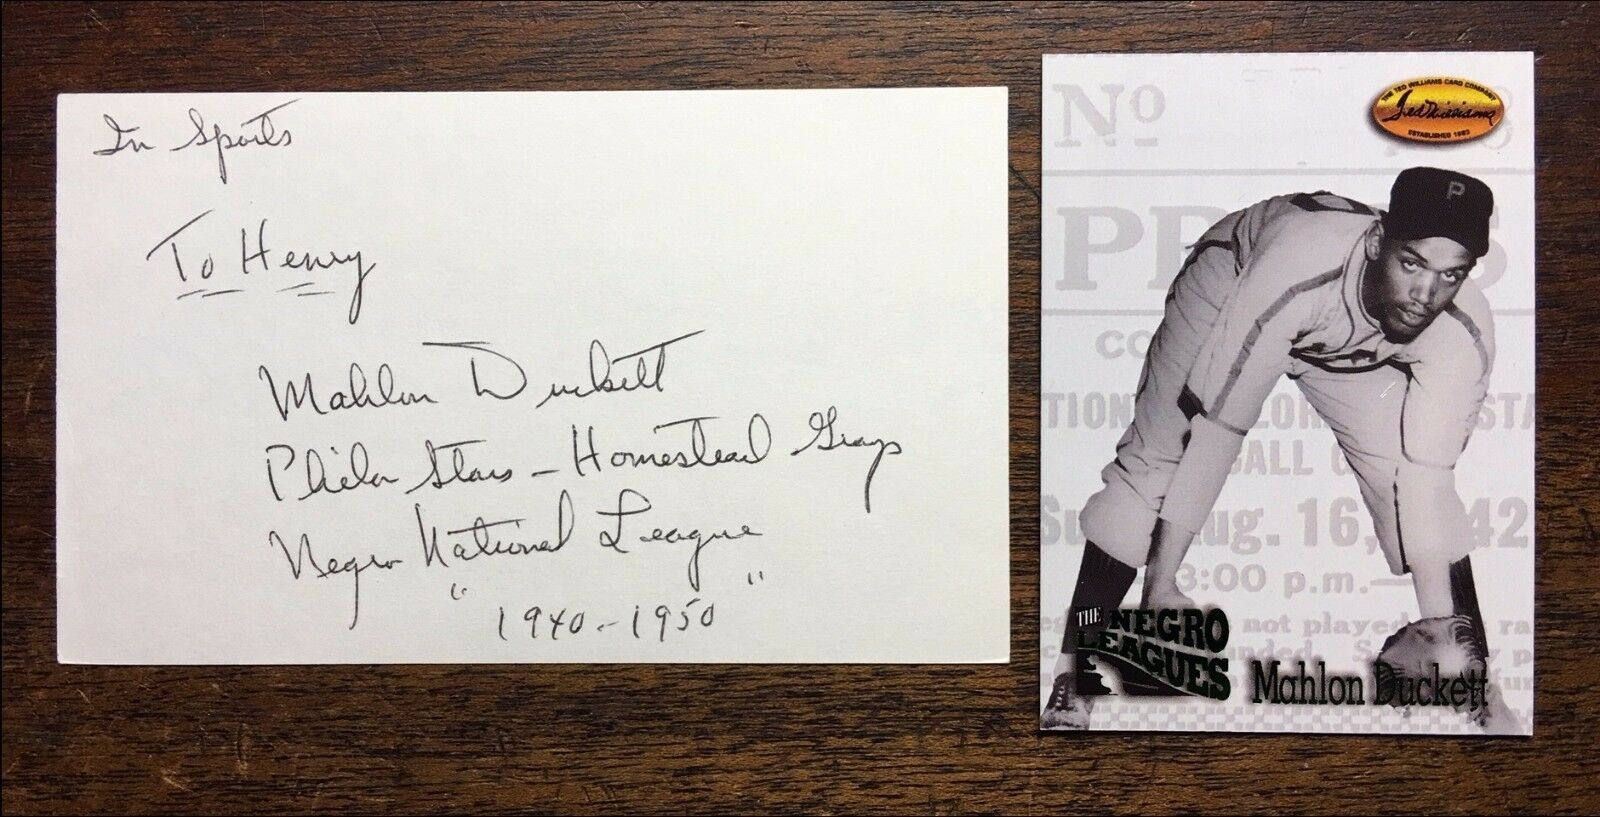 In Sports
To Henry
Mahlon Duckett
Phila Stars - Homestead Grays
Negro National League
" 1940 - 1950 "
No
THE TED WILLIAMS CARD COMPANY
Ted Williams
ESTABLISHED 1993
PR S
CO
TION LOR STA
BALL C
Su ug. 16, 42
3:00 p.m.—
not played ra
THE NEGRO
LEAGUES
Mahlon Duckett